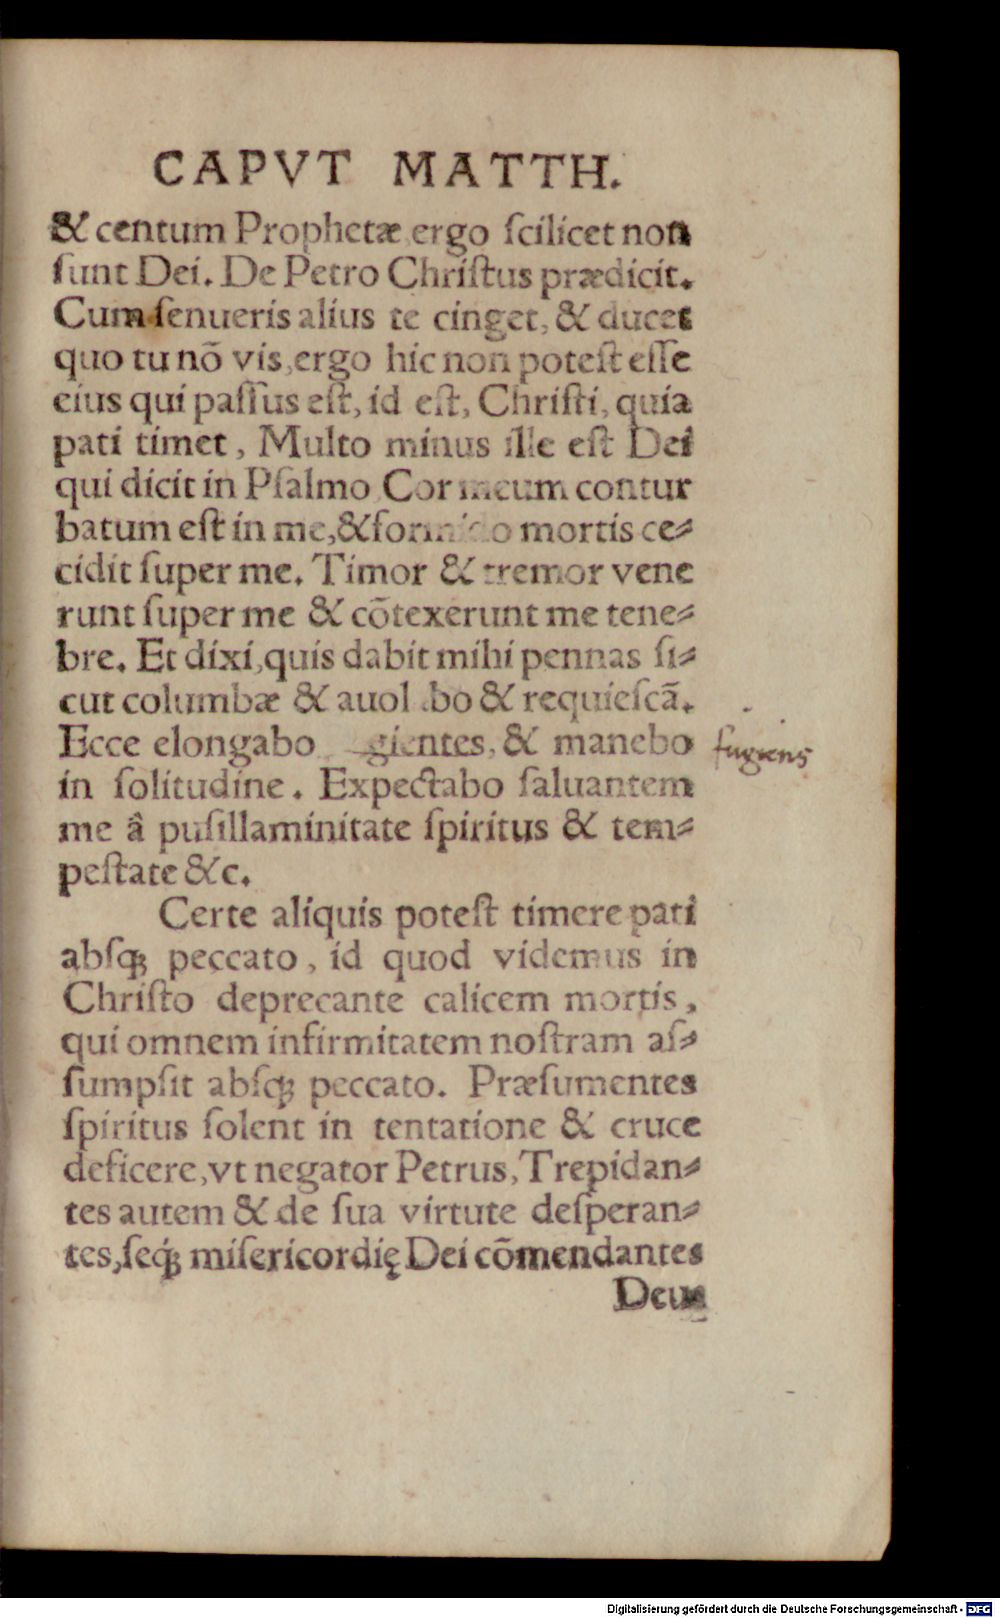 CAPVT MATTH.
& centum Prophetæ, ergo ſcilicet non
ſunt Dei. De Petro Chriſtus prædicit.
Cum ſenueris alius te cinget, & ducet
quo tu nō vis, ergo hic non poteſt eſſe
eius qui paſſus eſt, id eſt, Chriſti, quia
pati timet, Multo minus ille eſt Dei
qui dicit in Pſalmo Cor meum contur
batum eſt in me, & formido mortis ce⸗
cidit ſuper me. Timor & tremor vene
runt ſuper me & cōtexerunt me tene⸗
bre. Et dixi, quis dabit mihi pennas ſi⸗
cut columbæ & auol bo & requieſcā.
Ecce elongabo gientes, & manebo
fugiens
in ſolitudine. Expectabo ſaluantem
me â puſillaminitate ſpiritus & tem⸗
peſtate &c.
Certe aliquis poteſt timere pati
abſq; peccato, id quod videmus in
Chriſto deprecante calicem mortis,
qui omnem infirmitatem noſtram aſ⸗
ſumpſit abſq; peccato. Præſumentes
ſpiritus ſolent in tentatione & cruce
deficere, vt negator Petrus, Trepidan⸗
tes autem & de ſua virtute deſperan⸗
tes, ſeq; miſericordię Dei cōmendantes
Deus
Digitalisierung gefördert durch die Deutsche Forschungsgemeinschaft - DFG